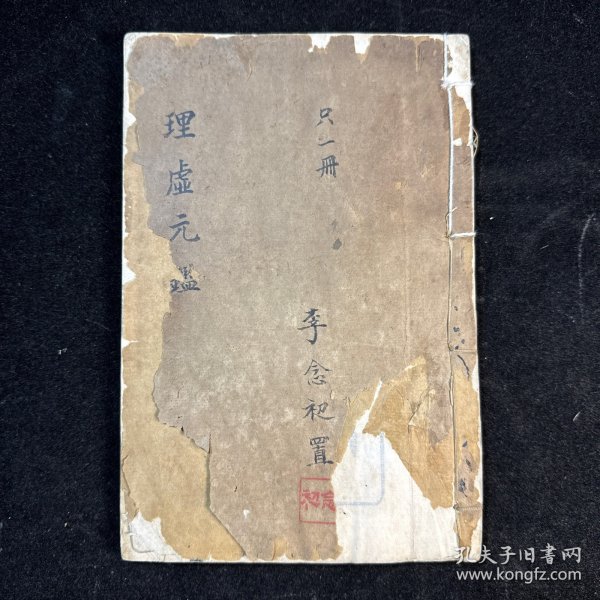 只一冊
李念初置
理虛元鑑
念初
孔夫子旧書网
www.kongfz.com